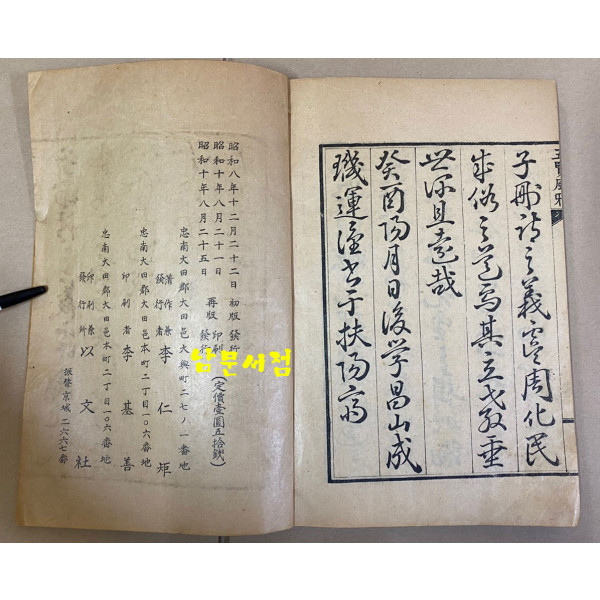 五鴨風雅
子刪詩之義實周化民
成俗之道焉其立教垂
世深且遠哉
癸酉陽月日後學昌山成
璣運謹書于扶陽齋
昭和八年十二月二十二日 初版 發行
昭和十年八月二十一日 再版 印刷
昭和十年八月二十五日 發行
(定價壹圓五拾錢)
忠南大田郡大田邑大興町二七ノ一番地
著作兼發行者 李仁矩
忠南大田郡大田邑本町二丁目一〇六番地
印刷者 李基善
忠南大田郡大田邑本町二丁目一〇六番地
印刷兼發行所 以文社
振替京城二六六七番
남문서점